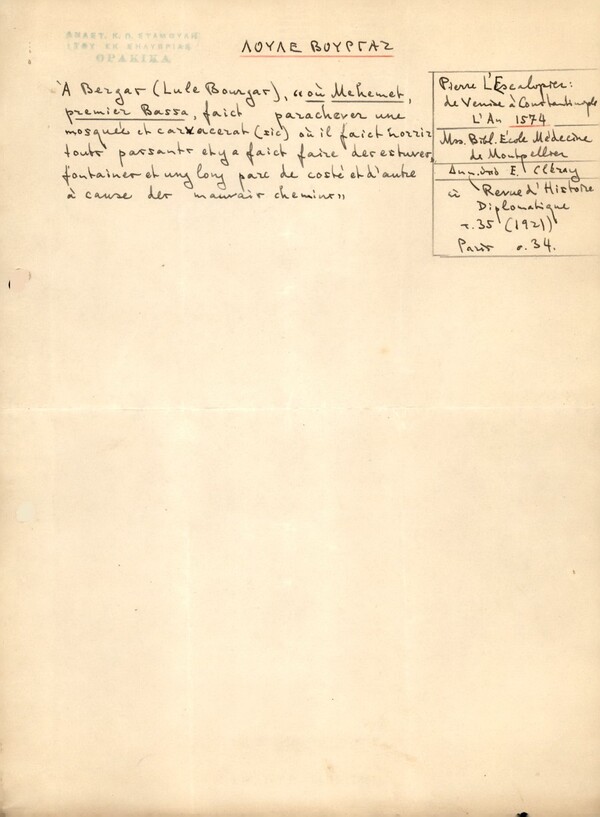 ΑΝΑΣΤ. Κ. Π. ΣΤΑΜΟΥΛΗ
ΤΟΥ ΕΚ ΣΗΛΥΒΡΙΑΣ
ΘΡΑΚΙΚΑ
ΛΟΥΛΕ ΒΟΥΡΓΑΖ
À Bergas (Lule Bourgas), «où Mehemet,
premier Bassa, faict parachever une
mosquée et carvacerat (sic) où il faict norrir
touts passants et y a faict faire des estuves,
fontaines et ung long parc de costé et d'autre
à cause des mauvais chemins»
Pierre L'Escalopier:
de Venise à Constantinople
L'An 1574
Mss. Bibl. École Médecine
de Montpellier
E. Cléray
Revue d'Histoire
Diplomatique
τ. 35 (1921)
Paris σ. 34.